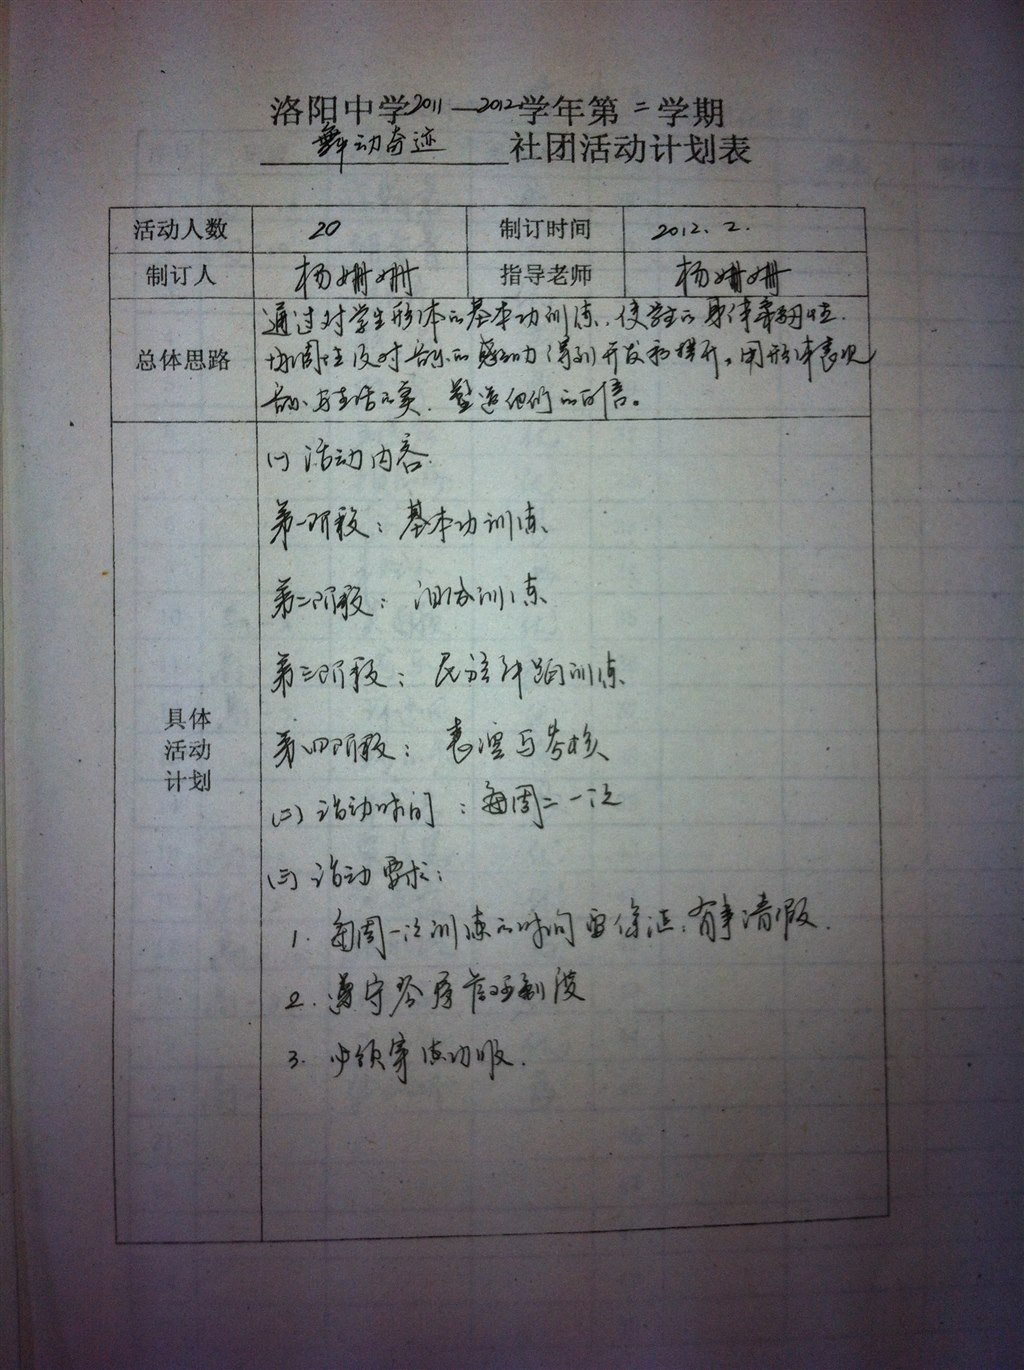 洛阳中学2011—2012学年第二学期
舞动奇迹 社团活动计划表
活动人数 20 制订时间 2012.2.
制订人 杨姗姗 指导老师 杨姗姗
总体思路
通过对学生形体的基本功训练,使学生的身体柔韧性.
协调性及对音乐的感知力得到开发和提升。用形体表现
音乐与生活的美,塑造他们的自信。
具体
活动
计划
(一) 活动内容.
第一阶段:基本功训练
第二阶段:组合训练
第三阶段:民族舞蹈训练
第四阶段:表演与考核
(二) 活动时间:每周二一次
(三) 活动要求:
1. 每周一次训练的时间要保证,有事请假.
2. 遵守 制度
3. 必须穿练功服.